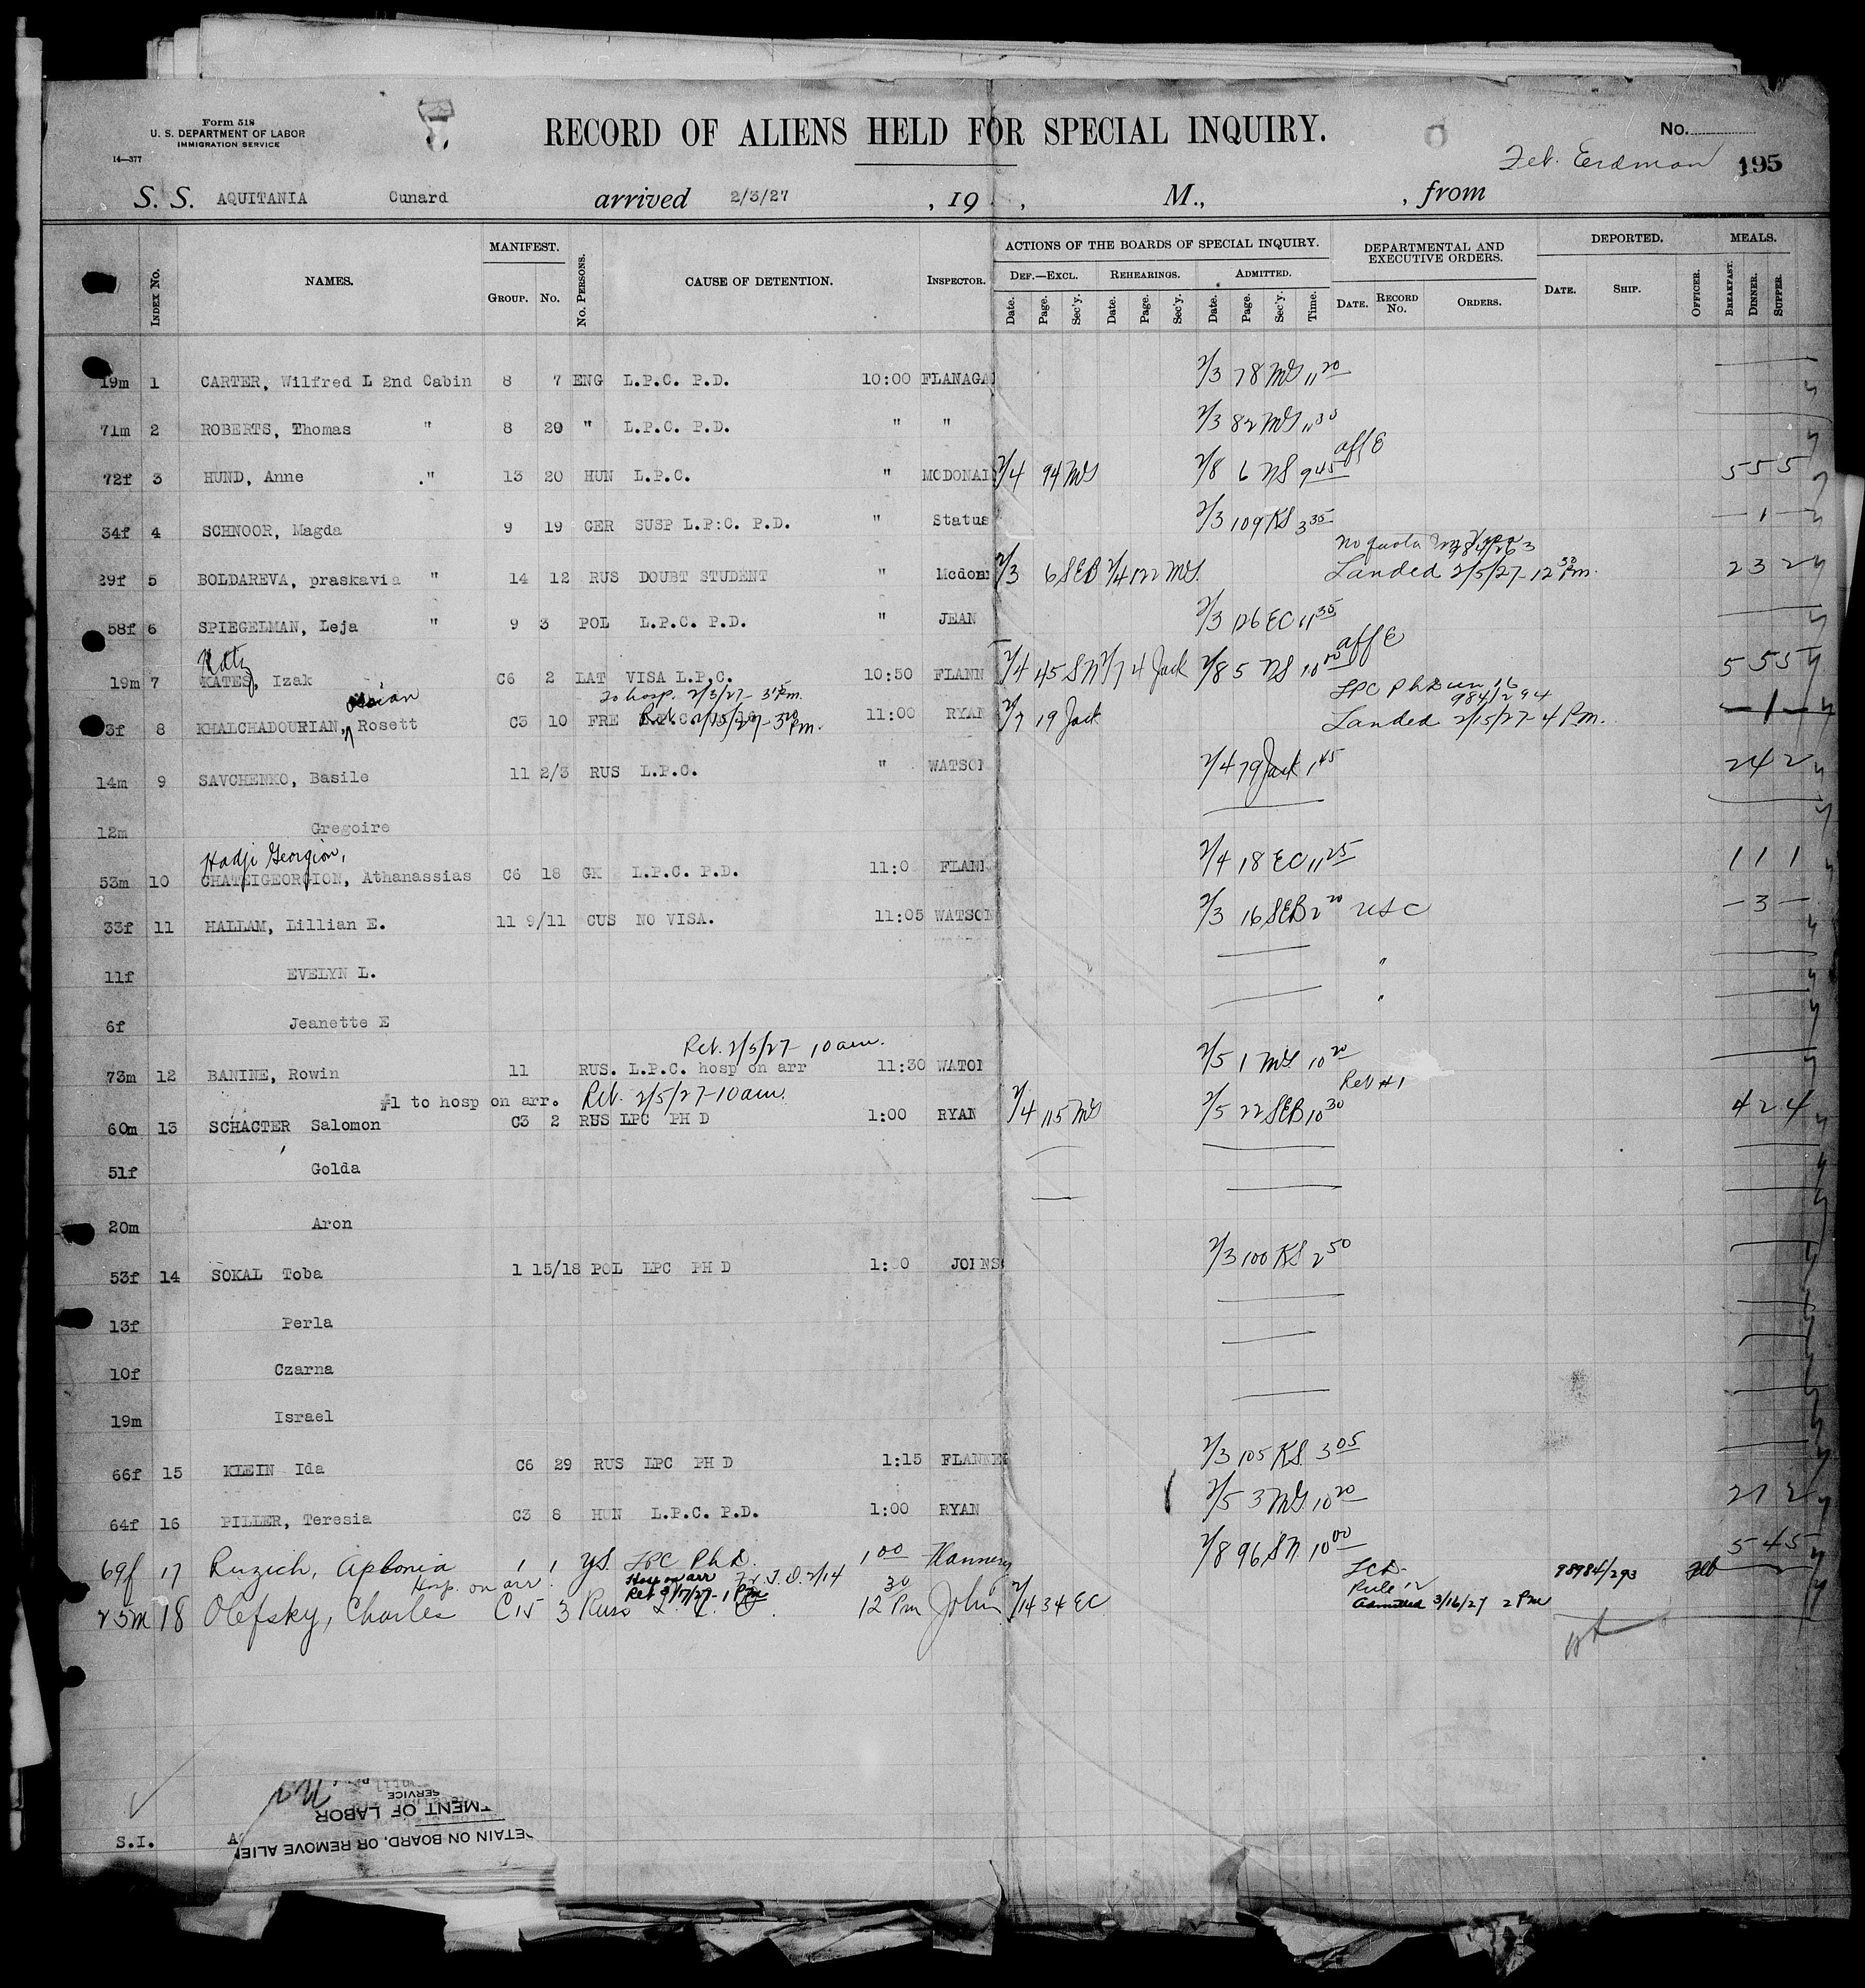 Form 518
U. S. DEPARTMENT OF LABOR
IMMIGRATION SERVICE
14—377
RECORD OF ALIENS HELD FOR SPECIAL INQUIRY.
No.
Feb. Erdman 195
S. S. AQUITANIA Cunard arrived 2/3/27 , 19 , M., , from
Index No. NAMES. MANIFEST. Group. No. No. Persons. CAUSE OF DETENTION. Inspector. ACTIONS OF THE BOARDS OF SPECIAL INQUIRY. Def.—Excl. Date. Page. Sec'y. Rehearings. Date. Page. Sec'y. Admitted. Date. Page. Sec'y. Time. DEPARTMENTAL AND EXECUTIVE ORDERS. Date. Record No. Orders. DEPORTED. Date. Ship. Officer. MEALS. Breakfast. Dinner. Supper.
19m 1 CARTER, Wilfred L 2nd Cabin 8 7 ENG L.P.C. P.D. 10:00 FLANAGA 2/3 78 MG 11 20
71m 2 ROBERTS, Thomas " 8 20 " L.P.C. P.D. " " 2/3 82 MG 11 30
72f 3 HUND, Anne ." 13 20 HUN L.P.C. " MCDONAL 2/4 94 MG 2/8 6 NS 9 45 aff E 5 5 5
34f 4 SCHNOOR, Magda 9 19 GER SUSP L.P.C. P.D. " Status 2/3 109 KS 3 35 — 1 —
984/263
29f 5 BOLDAREVA, praskavia " 14 12 RUS DOUBT STUDENT " Mcdon 2/3 6 SEB 2/4 122 MG. Landed 2/5/27 - 12 30 Pm. 2 3 2
58f 6 SPIEGELMAN, Leja " 9 3 POL L.P.C. P.D. " JEAN 2/3 126 EC 11 35
Katz
19m 7 KATES, Izak C6 2 LAT VISA L.P.C. 10:50 FLANN 2/4 45 SN 2/7 4 Jack 2/8 5 NS 10 00 aff E 5 5 5
To hosp. 2/3/27 - 3 15 Pm. LPC Ph D
984/294
8 KHALCHADOURIAN, Rosett C3 10 FRE Ret. 2/15/27 - 3 20 Pm. 11:00 RYAN 2/7 19 Jack Landed 2/15/27 - 4 P.M. — 1 —
14m 9 SAVCHENKO, Basile 11 2/3 RUS L.P.C. " WATSON 2/4 79 Jack 1 45 2 4 2
12m Gregoire
Hadji Georgion,
53m 10 CHATZIGEORGION, Athanassias C6 18 GK L.P.C. P.D. 11:0 FLANN 2/4 18 EC 11 25 1 1 1
33f 11 HALLAM, Lillian E. 11 9/11 CUS NO VISA. 11:05 WATSON 2/3 16 SEB 2 20 USC — 3 —
11f EVELYN L. "
6f Jeanette E "
Ret. 2/5/27 - 10 am.
73m 12 BANINE, Rowin 11 RUS. L.P.C. hosp on arr 11:30 WATO 2/5 1 MG 10 20
#1 to hosp on arr. Ret. 2/5/27 - 10 am. Ret #1
60m 13 SCHACTER Salomon C3 2 RUS LPC PH D 1:00 RYAN 2/4 115 MG 2/5 22 SEB 10 30 4 2 4
51f Golda
20m Aron
53f 14 SOKAL Toba 1 15/18 POL LPC PH D 1:00 JOHNS 2/3 100 KS 2 50
13f Perla
10f Czarna
19m Israel
66f 15 KLEIN Ida C6 29 RUS LPC PH D 1:15 FLANNE 2/3 105 KS 3 05
64f 16 PILLER, Teresia C3 8 HUN L.P.C. P.D. 1:00 RYAN 2/5 3 MG 10 20
69f 17 Ruzich, Aplonia 1 1 YS. LPC Ph D. 1 00 Flannery 2/8 96 SN. 10 00 5 4 5
Hosp. on arr. Hosp on arr 2/14
Ret 3/17/27 - 1 Pm Rule 12 98984/293
25m 18 Olefsky, Charles C15 3 Russ 12 30 Pm John 2/14 34 EC Admitted 3/16/27 2 Pm
S.I.
SERVICE
TMENT OF LABOR
ETAIN ON BOARD, OR REMOVE ALIE